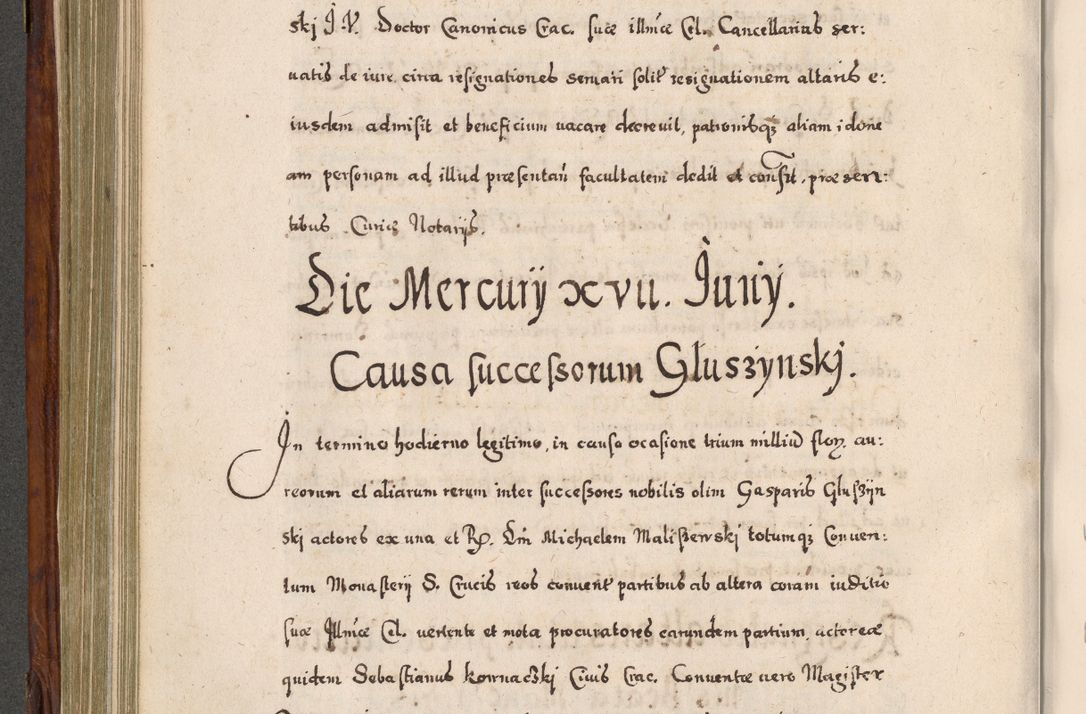 skj J. V. Doctor Canonicus Crac. suæ illmæ Cel. Cancellarius ser:
uatis de iure, circa resignationes seruari solit resignationem altaris e:
iusdem admisit et beneficium uacare decreuit, patronisqz aliam idone
am personam ad illud præsentan facultatem dedit et consit, præsen:
tibus Curiæ Notarijs.
Die Mercurij xvii. Junij.
Causa successorum Gluszynskj.
In termino hodierno legitimo, in causa ocasione trium milliu flor. au:
reorum et aliarum rerum inter successores nobilis olim Gasparis Gluszijn
skj actores ex una et Rp. Dm Michaelem Maliszewskj totumqz Conuen:
tum Monasterij S. Crucis reos conuent partibus ab altera coram iuditio
suæ Illmæ Cel. uertente et mota procuratores earundem partium, actoreæ
quidem Sebastianus kornaczki Ciuis Crac. Conuentæ uero Magister